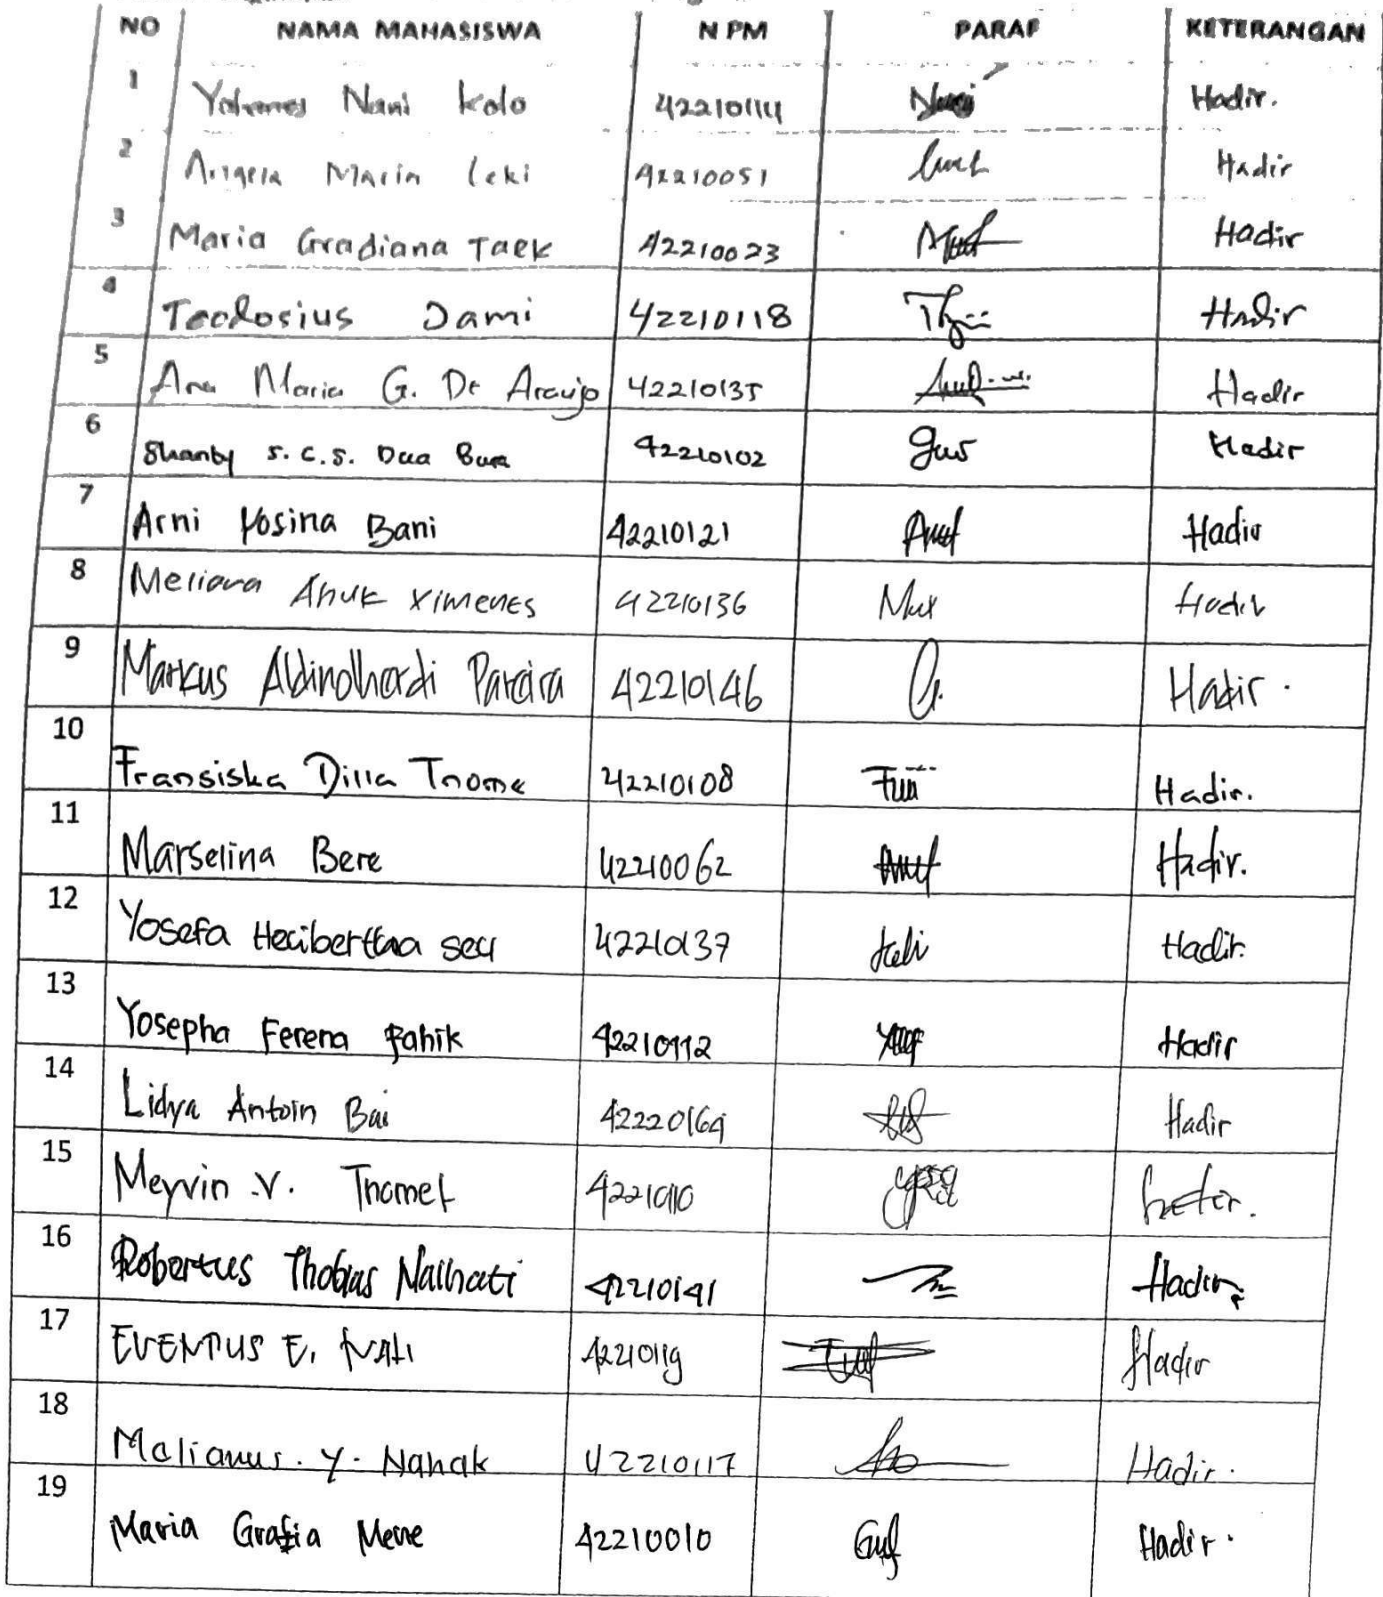 NO NAMA MAHASISWA NPM PARAF KETERANGAN
1 Yohanes Nani Kolo 42210114 Hadir.
2 Angela Maria Leki 42210051 Hadir
3 Maria Gradiana Taek 42210023 Hadir
4 Teodosius Dami 42210118 Hadir
5 Ana Maria G. De Araujo 42210135 Hadir
6 Shanby S.C.S. Dua Bura 42210102 Hadir
7 Arni Yosina Bani 42210121 Hadir
8 Meliana Anuk Ximenes 42210136 Hadir
9 Markus Aldinolhardi Pareira 42210146 Hadir.
10 Fransiska Dilla Tnome 42210108 Hadir.
11 Marselina Bere 42210062 Hadir.
12 Yosefa 42210137 Hadir.
13 Yosepha Ferena Fahik 42210112 Hadir
14 Lidya Antoin Bai 42220169 Hadir
15 Meyvin .V. Tnomel 42210110
16 Robertus Thobias Naihati 42210141 Hadir
17 E. 42210119 Hadir
18 Melianus. Y. Nahak 42210117 Hadir.
19 Maria Grafia Mene 42210010 Hadir.